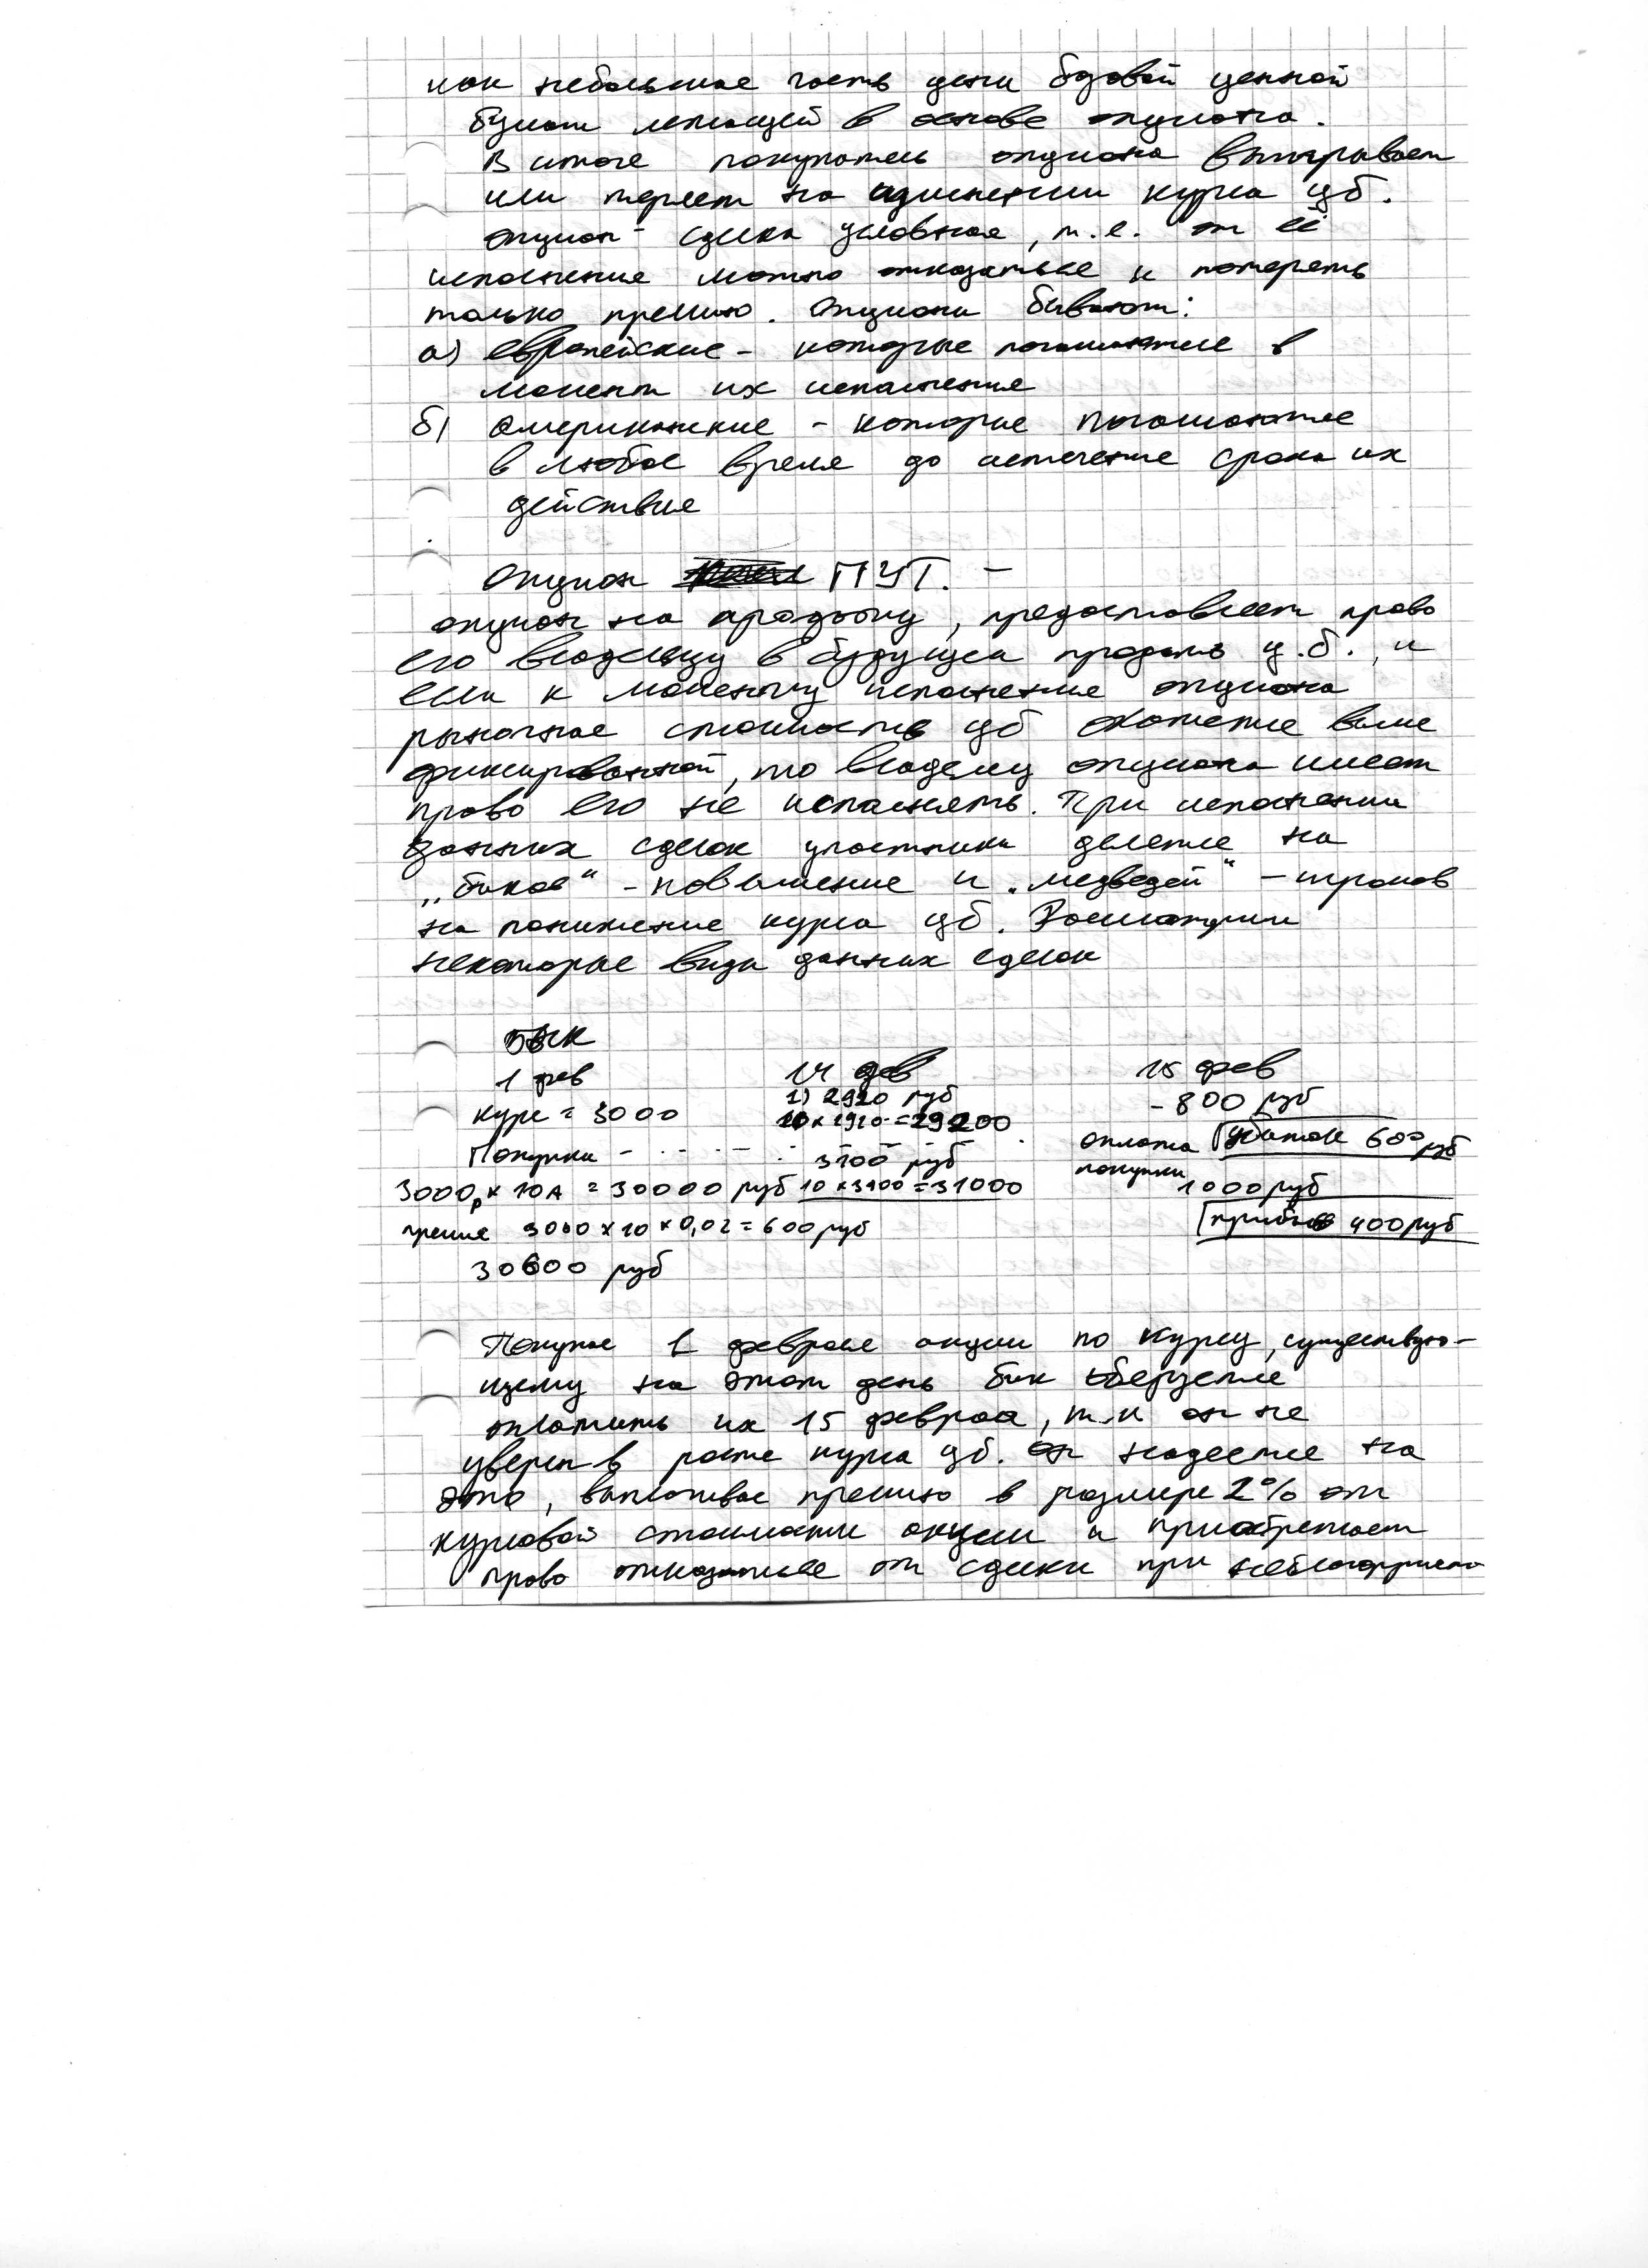 как небольшая часть цены базовой ценной
бумаги лежащей в основе опциона.
В итоге покупатель опциона выигрывает
или теряет на изменении курса цб.
Опцион - сделка условная, т.е. от её
исполнения можно отказаться и потерять
только премию. Опционы бывают:
а) европейские - которые погашаются в
момент их исполнения
б) американские - которые погашаются
в любое время до истечения срока их
действия
Опцион ПУТ. -
опцион на продажу, предоставляет право
его владельцу в будущем продать ц.б., и
если к моменту исполнения опциона
рыночная стоимость цб окажется выше
фиксированной, то владелец опциона имеет
право его не исполнять. При исполнении
данных сделок участники делятся на
„быков“ - повышение и „медведей“ - игроков
на понижение курса цб. Рассмотрим
некоторые виды данных сделок
Бык
1 фев 14 фев 15 фев
курс = 3000 1) 2920 руб - 800 руб
10 x 2920 = 29200
Покупка - 3100 руб оплата покупки убыток 600 руб
3000р x 10А = 30000 руб 10 x 3100 = 31000 1000 руб
премия 3000 x 10 x 0,02 = 600 руб прибыль 400 руб
30600 руб
Покупая 1 февраля акции по курсу, существую-
щему на этот день бык обязуется
оплатить их 15 февраля, т.к он не
уверен в росте курса цб. Он надеется на
это, выплачивая премию в размере 2% от
курсовой стоимости акции и приобретает
право отказаться от сделки при неблагоприятн